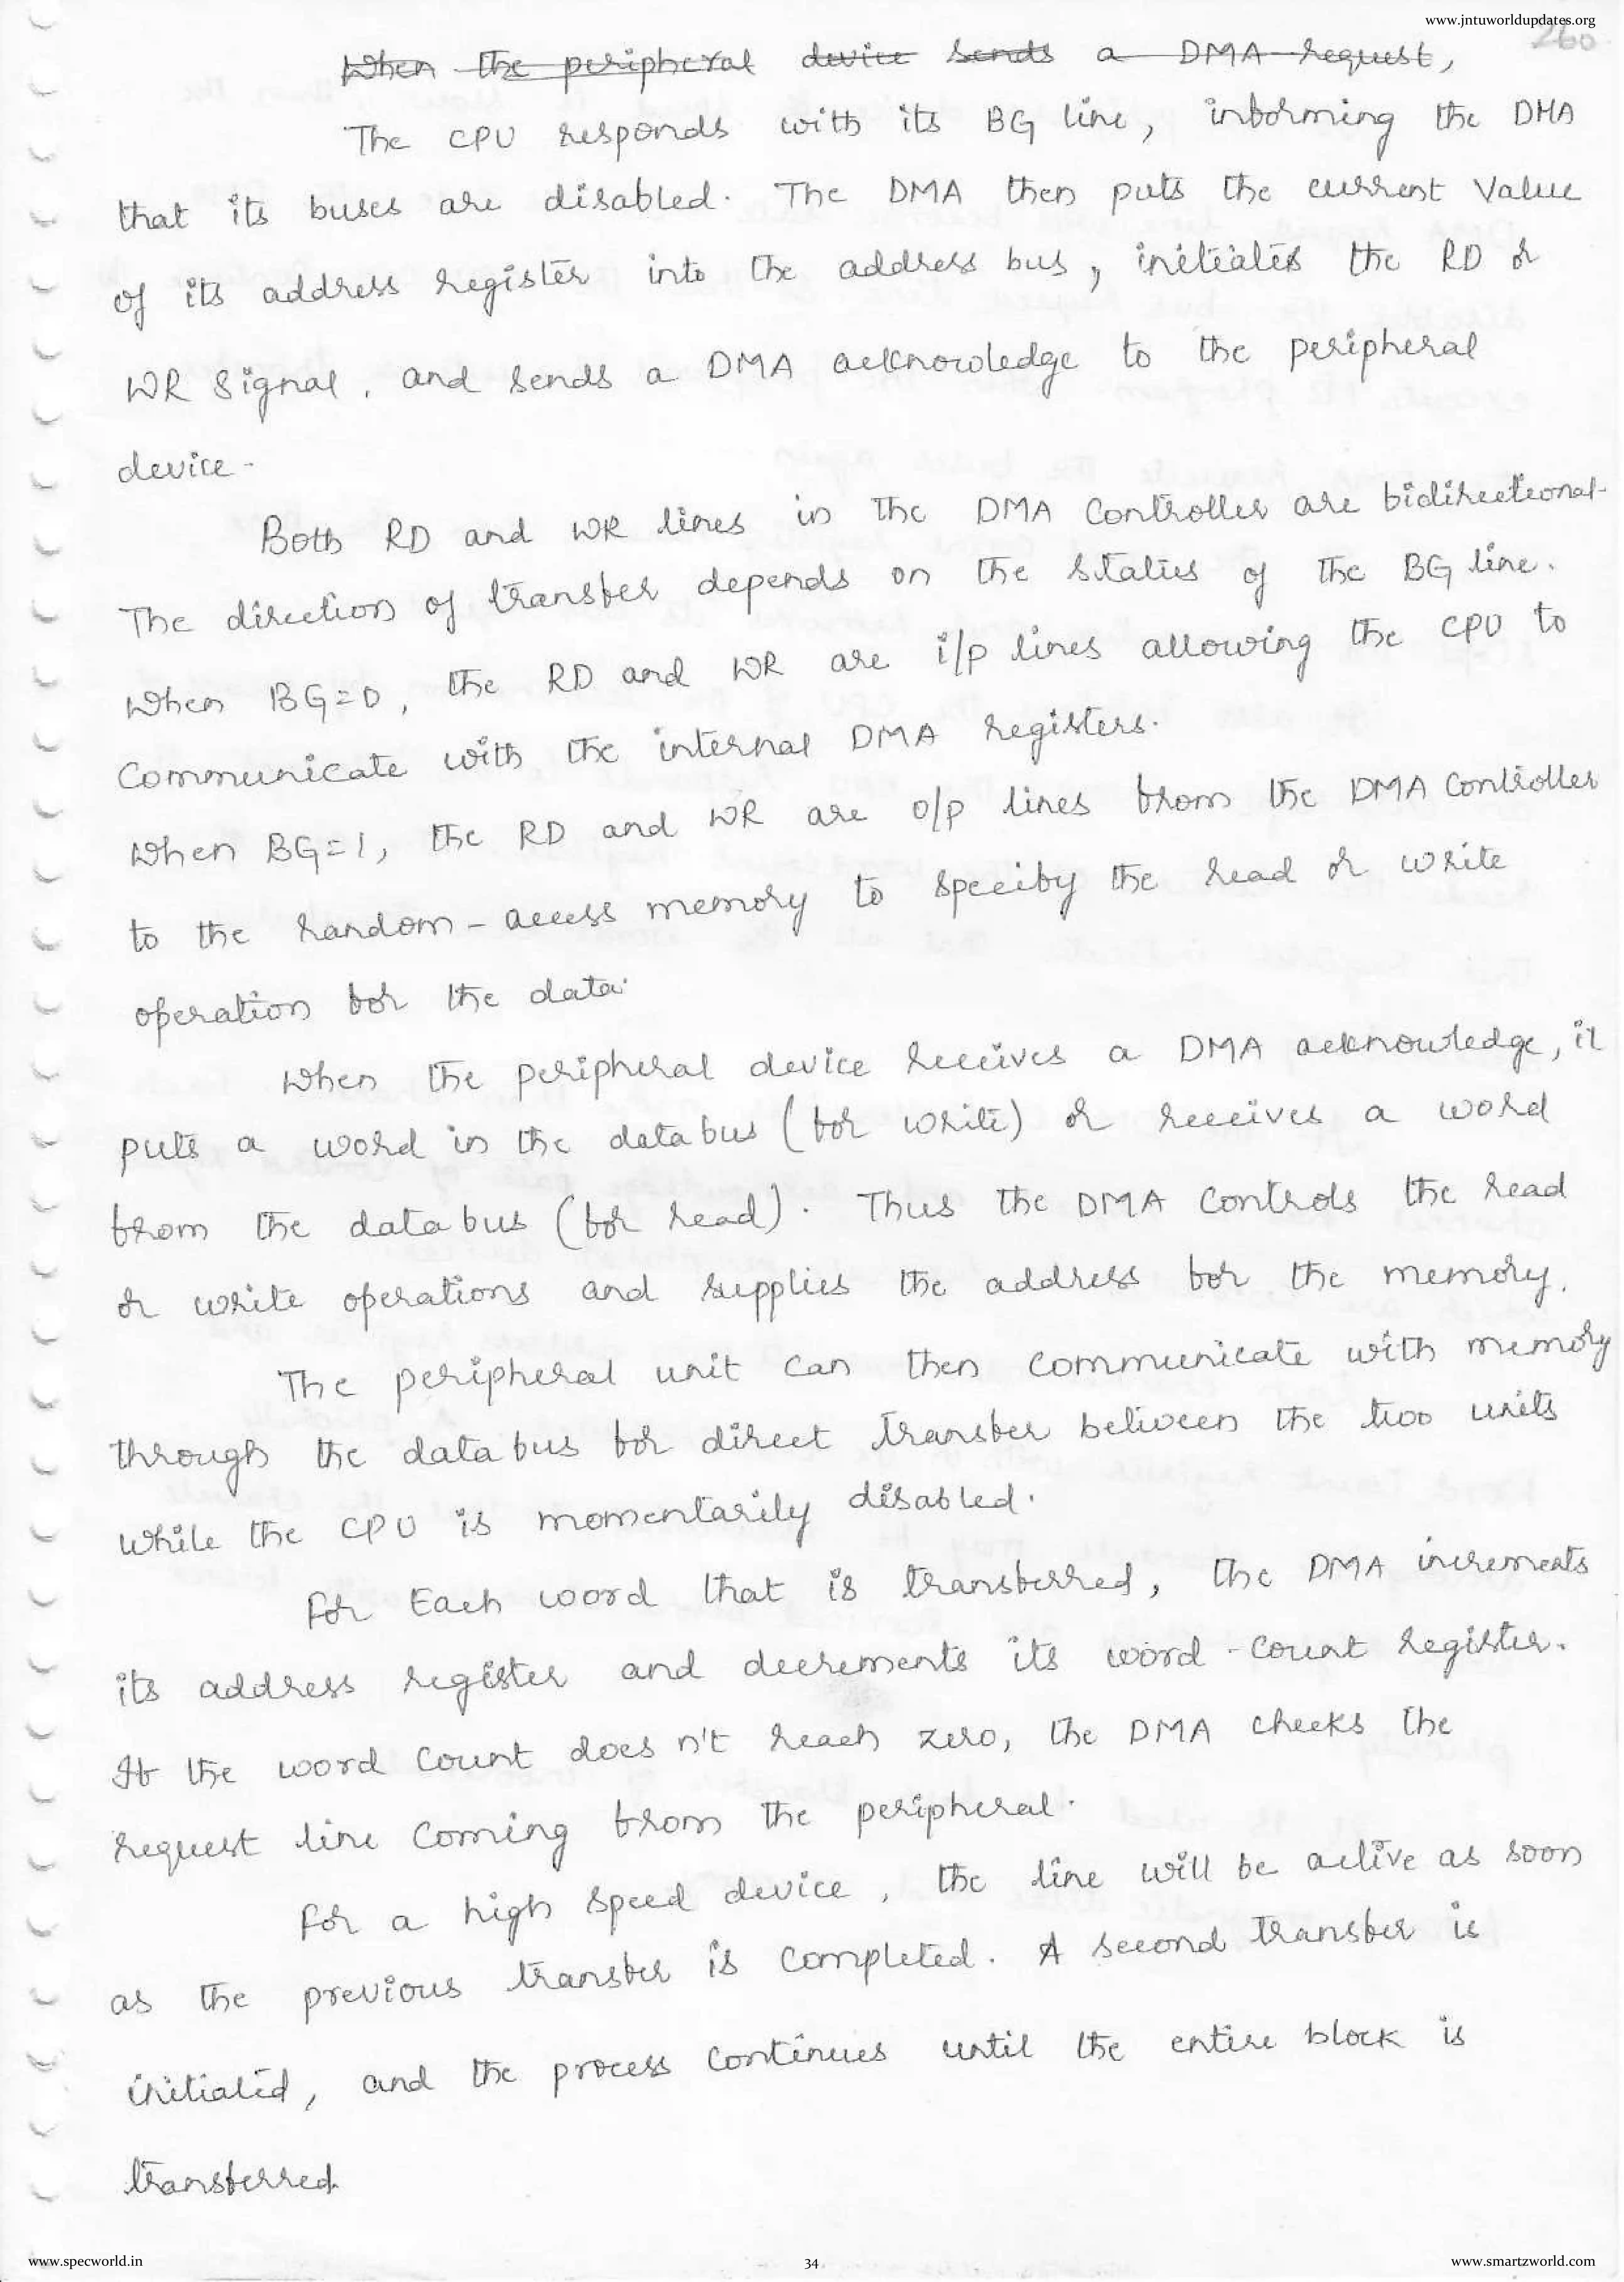 www.jntuworldupdates.org
260
When the peripheral device sends a DMA request,
The CPU responds with its BG line, informing the DMA
that its buses are disabled. The DMA then puts the current value
of its address register into the address bus, initiates the RD or
WR signal, and sends a DMA acknowledge to the peripheral
device.
Both RD and WR lines in the DMA controller are bidirectional.
The direction of transfer depends on the status of the BG line.
When BG=0, the RD and WR are i/p lines allowing the CPU to
Communicate with the internal DMA registers.
When BG=1, the RD and WR are o/p lines from the DMA controller
to the random-access memory to specify the read or write
operation for the data.
When the peripheral device receives a DMA acknowledge, it
puts a word in the data bus (for write) or receives a word
from the data bus (for read). Thus the DMA controls the read
or write operations and supplies the address for the memory.
The peripheral unit can then communicate with memory
through the data bus for direct transfer between the two units
While the CPU is momentarily disabled.
For Each word that is transferred, the DMA increments
its address register and decrements its word-count register.
If the word count does n't reach zero, the DMA checks the
request line coming from the peripheral.
For a high speed device, the line will be active as soon
as the previous transfer is completed. A second transfer is
initiated, and the process continues until the entire block is
transferred.
www.specworld.in
34
www.smartzworld.com